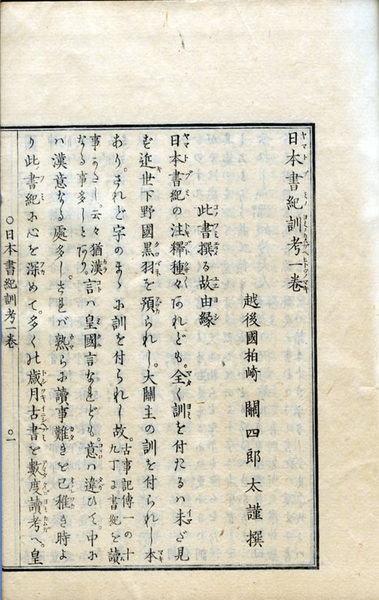 日本書紀訓考一卷
越後國柏崎 關四郎太謹撰
此書撰る故由縁
日本書紀の注釋種々あれども。全く訓を付たるハ未ざ見
ず近世下野國黒羽を預られし。大關主の訓を付られし本
あり。されど字のまゝに訓を付られし故。古事記傳一の十九丁に書紀を讀
事 云々 猶漢言ハ皇國言なれども。意ハ違ひて中に
ハ漢意なる處多し。されバ熟らに讀事難きを已稚き時よ
り此書紀に心を深めて。多くの歳月古書を數度讀考へ。皇
〇日本書紀訓考一卷 〇一